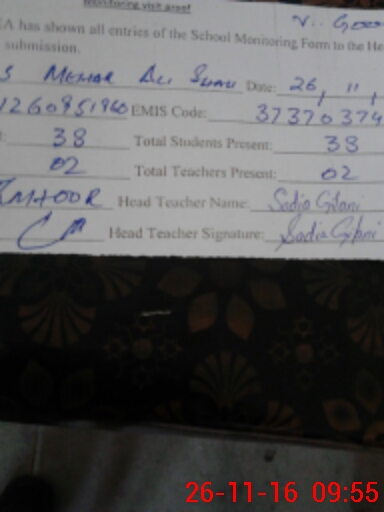 Monitoring visit proof
V. Good
EA has shown all entries of the School Monitoring Form to the He
submission.
S MEHAR ALI SHAH Date: 26, 11,
1260951960 EMIS Code: 37370374
: 38 Total Students Present: 38
02 Total Teachers Present: 02
Head Teacher Name: Sadia Gilani
Head Teacher Signature: Sadia Gilani
26-11-16 09:55